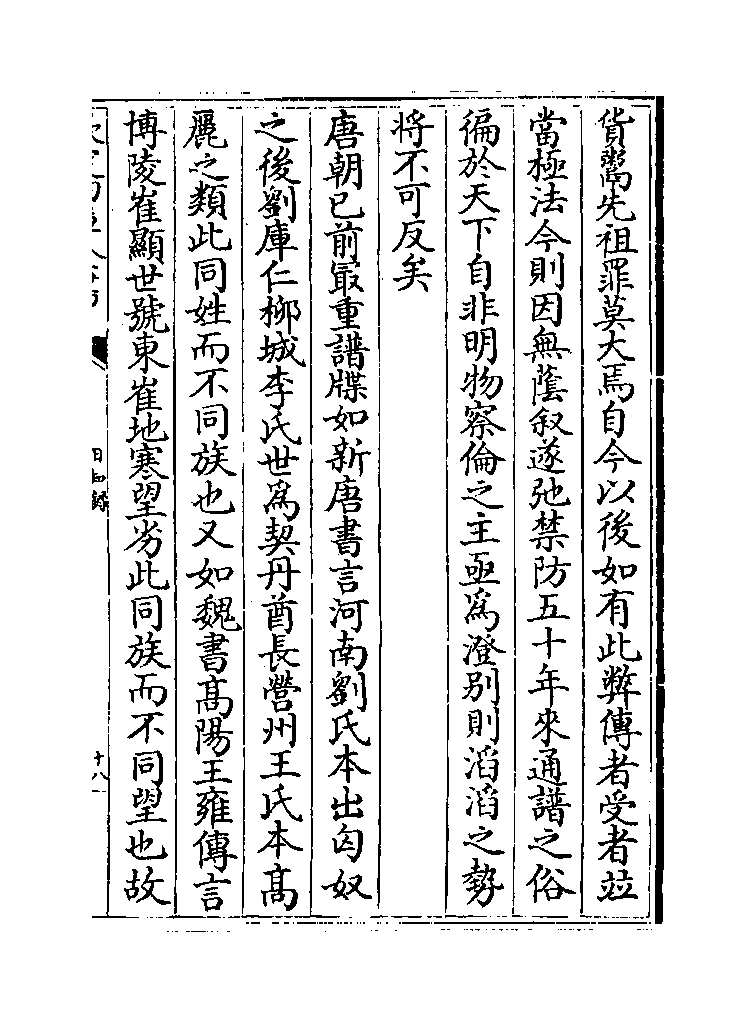 貨鬻先祖罪莫大焉自今以後如有此弊傳者受者竝
當極法今則因無蔭叙遂弛禁防五十年來通譜之俗
徧於天下自非明物察倫之主亟爲澄别則滔滔之勢
將不可反矣
唐朝已前最重譜牒如新唐書言河南劉氏本出匈奴
之後劉庫仁柳城李氏世爲契丹酋長營州王氏本髙
麗之類此同姓而不同族也又如魏書髙陽王雍傳言
博陵崔顯世號東崔地寒望劣此同族而不同望也故
日知錄
十八